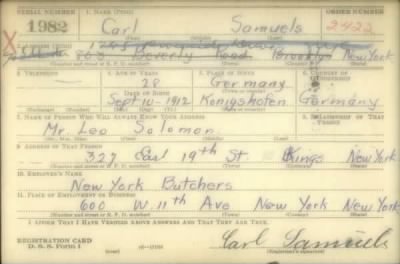 SERIAL NUMBER 1. NAME (Print) ORDER NUMBER
1982 Carl Samuels 2422
(First) (Middle) (Last)
X
803 Beverly Road Brooklyn New York
(Number and street or R. F. D. number) (Town) (County) (State)
3. TELEPHONE 4. AGE IN YEARS 5. PLACE OF BIRTH 6. COUNTRY OF CITIZENSHIP
28 Germany
DATE OF BIRTH
Sept 10-1912 Konigshofen Germany
(Exchange) (Number) (Mo.) (Day) (Yr.) (State or country)
7. NAME OF PERSON WHO WILL ALWAYS KNOW YOUR ADDRESS 8. RELATIONSHIP OF THAT PERSON
Mr Leo Solomon
(Mr., Mrs., Miss) (First) (Middle) (Last)
9. ADDRESS OF THAT PERSON
327 East 19th St Kings New York
(Number and street or R. F. D. number) (Town) (County) (State)
10. EMPLOYER'S NAME
New York Butchers
11. PLACE OF EMPLOYMENT OR BUSINESS
600 W. 11th Ave New York New York
(Number and street or R. F. D. number) (Town) (County) (State)
I AFFIRM THAT I HAVE VERIFIED ABOVE ANSWERS AND THAT THEY ARE TRUE.
REGISTRATION CARD
D. S. S. Form 1 Carl Samuels
(Registrant's signature)